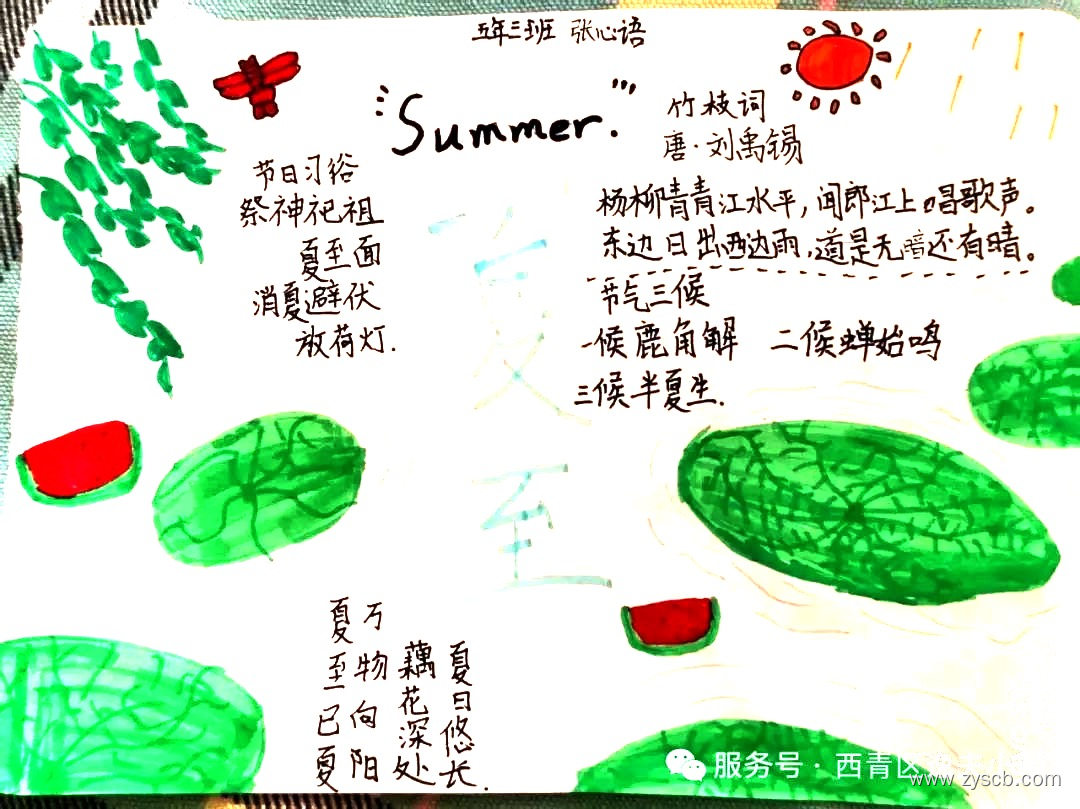 五年三班 张心语
"Summer."
竹枝词
唐·刘禹锡
杨柳青青江水平，闻郎江上唱歌声。
东边日出西边雨，道是无暗还有晴。
节日习俗
祭神祀祖
夏至面
消夏避伏
放荷灯.
夏至
节气三候
一候鹿角解 二候蝉始鸣
三候半夏生.
夏至已夏
万物向阳
藕花深处
夏日悠长.
服务号·西青区
www.zyscb.com